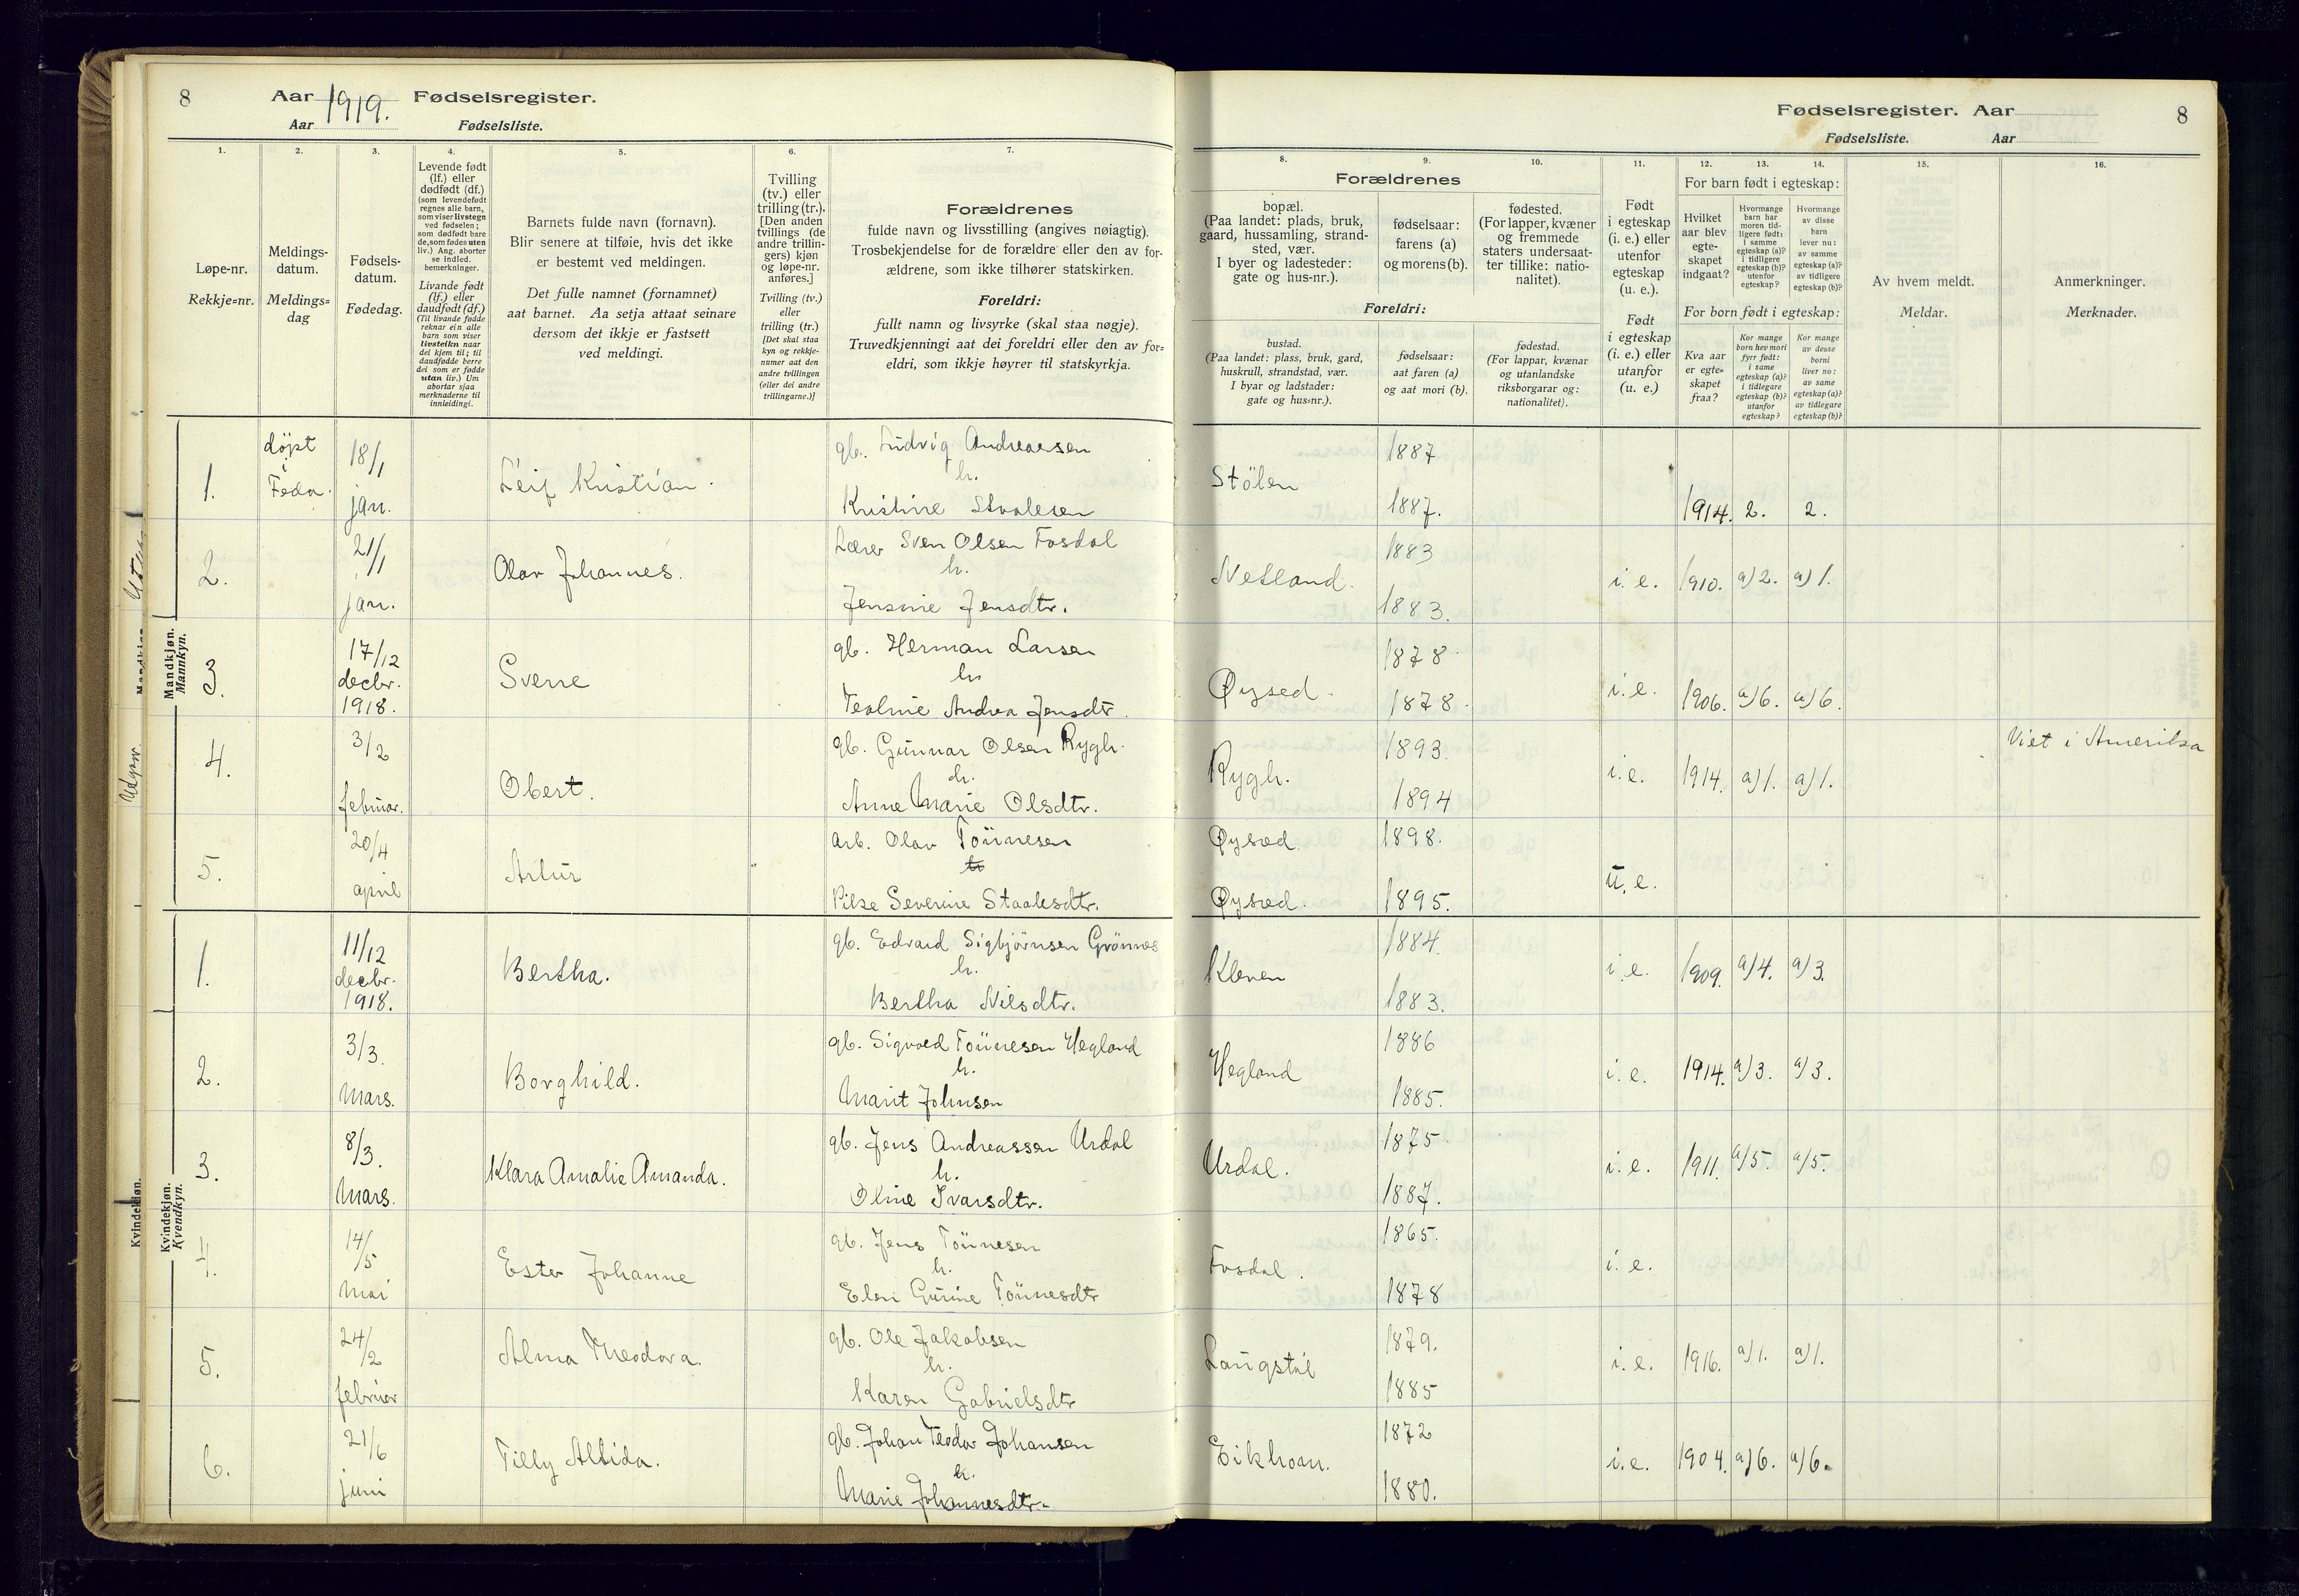 8
Aar 1919. Fødselsregister.
Aar Fødselsliste.
1.
2.
3.
4.
5.
6.
7.
Løpe-nr.
Rekkje=nr.
Meldings-
datum.
Meldings=
dag
Fødsels-
datum.
Fødedag.
Levende født
(lf.) eller
dødfødt (df.)
(som levendefødt
regnes alle barn,
som viser livstegn
ved fødselen;
som dødfødt bare
de, som fødes uten
liv.) Ang. aborter
se indled.
bemerkninger.
Livande født
(lf.) eller
daudfødt (df.)
(Til livande fødde
reknar ein alle
barn som viser
livsteikn naar
dei kjem til; til
daudfødde berre
dei som er fødde
utan liv.) Um
abortar sjaa
merknaderne til
innleidingi.
Barnets fulde navn (fornavn).
Blir senere at tilføie, hvis det ikke
er bestemt ved meldingen.
Det fulle namnet (fornamnet)
aat barnet. Aa setja attaat seinare
dersom det ikkje er fastsett
ved meldingi.
Tvilling
(tv.) eller
trilling (tr.).
[Den anden
tvillings (de
andre trillin-
gers) kjøn
og løpe-nr.
anføres.]
Tvilling (tv.)
eller
trilling (tr.)
[Det skal staa
kyn og rekkje-
numer aat den
andre tvillingen
(eller dei andre
trillingarne.)]
Forældrenes
fulde navn og livsstilling (angives nøiagtig).
Trosbekjendelse for de forældre eller den av for-
ældrene, som ikke tilhører statskirken.
Foreldri:
fullt namn og livsyrke (skal staa nøgje).
Truvedkjenningi aat dei foreldri eller den av for=
eldri, som ikkje høyrer til statskyrkja.
Mandkjøn.
Mannkyn.
1.
døpt
i
Feda.
18/1
jan.
Leif Kristian.
gb. Ludvig Andreassen
h.
Kristine Stvalesen
2.
21/1
jan.
Olav Johannes.
Lærer Sven Olsen Fosdal
h.
Jensine Jensdtr.
3.
17/12
decbr.
1918.
Sverre
gb. Herman Larsen
h.
Tealine Andrea Jensdtr.
4.
3/2
februar.
Obert.
gb. Gunnar Olsen Rygh.
h.
Anne Marie Olsdtr.
5.
20/4
april
Artur
Arb. Olav Tönnesen
h
Pike Severine Staalesdtr.
Kvindekjøn.
Kvendkyn.
1.
11/12
decbr.
1918.
Bertha.
gb. Edvard Sigbjörnsen Grönnes
h.
Bertha Nilsdtr.
2.
3/3.
Mars.
Borghild.
gb. Sigvald Tönnesen Hegland
h.
Marit Johnsen
3.
8/3.
Mars.
Klara Amalie Amanda.
gb. Jens Andreassen Urdal
h.
Oline Ivarsdtr.
4.
14/5
Mai
Ester Johanne
gb. Jens Tönnesen
h.
Elen Gurine Tönnesdtr
5.
24/2
februar
Alma Theodora.
gb. Ole Jakobsen
h.
Karen Gabrielsdtr
6.
21/6
juni
Tilly Alfida.
gb. Johan Teodor Johansen
h.
Marie Johannesdtr.
Fødselsregister. Aar
8
Fødselsliste. Aar
8.
9.
10.
11.
12.
13.
14.
15.
16.
Forældrenes
bopæl.
(Paa landet: plads, bruk,
gaard, hussamling, strand-
sted, vær.
I byer og ladesteder:
gate og hus-nr.).
fødselsaar:
farens (a)
og morens (b).
fødested.
(For lapper, kvæner
og fremmede
staters undersaat-
ter tillike: natio-
nalitet).
Foreldri:
bustad.
(Paa landet: plass, bruk, gard,
huskrull, strandstad, vær.
I byar og ladstader:
gate og hus=nr.).
fødselsaar:
aat faren (a)
og aat mori (b).
fødestad.
(For lappar, kvænar
og utanlandske
riksborgarar og:
nationalitet).
Født
i egteskap
(i. e.) eller
utenfor
egteskap
(u. e.).
Født
i egteskap
(i. e.) eller
utanfor
(u. e.)
For barn født i egteskap:
Hvilket
aar blev
egte-
skapet
indgaat?
Hvormange
barn har
moren tid-
ligere født:
i samme
egteskap (a)?
i tidligere
egteskap (b)?
utenfor
egteskap?
Hvormange
av disse
barn
lever nu:
av samme
egteskap (a)?
av tidligere
egteskap (b)?
For born født i egteskap:
Kva aar
er egte=
skapet
fraa?
Kor mange
born hev mori
fyrr født:
i same
egteskap (a)?
i tidlegare
egteskap (b)?
utanfor
egteskap?
Kor mange
av desse
borni
liver no:
av same
egteskap (a)?
av tidlegare
egteskap (b)?
Av hvem meldt.
Meldar.
Anmerkninger.
Merknader.
Stölen
1887
1887.
1914. 2. 2.
Netland.
1883
1883.
i. e. 1910. a) 2. a) 1.
Øysed.
1878
1878.
i. e. 1906. a) 6. a) 6.
Rygh.
1893.
1894
i. e. 1914. a) 1. a) 1.
Viet i Amerika
Øysæd.
1898.
u. e.
Øysæd.
1895.
Kleven
1884.
1883.
i. e. 1909. a) 4. a) 3.
Hegland
1886
1885.
i. e. 1914. a) 3. a) 3.
Urdal.
1875.
1887.
i. e. 1911. a) 5. a) 5.
Fosdal.
1865.
1878
i. e.
Langstöl
1879.
1885
i. e. 1916. a) 1. a) 1.
Eikhom.
1872
1880.
i. e. 1904. a) 6. a) 6.